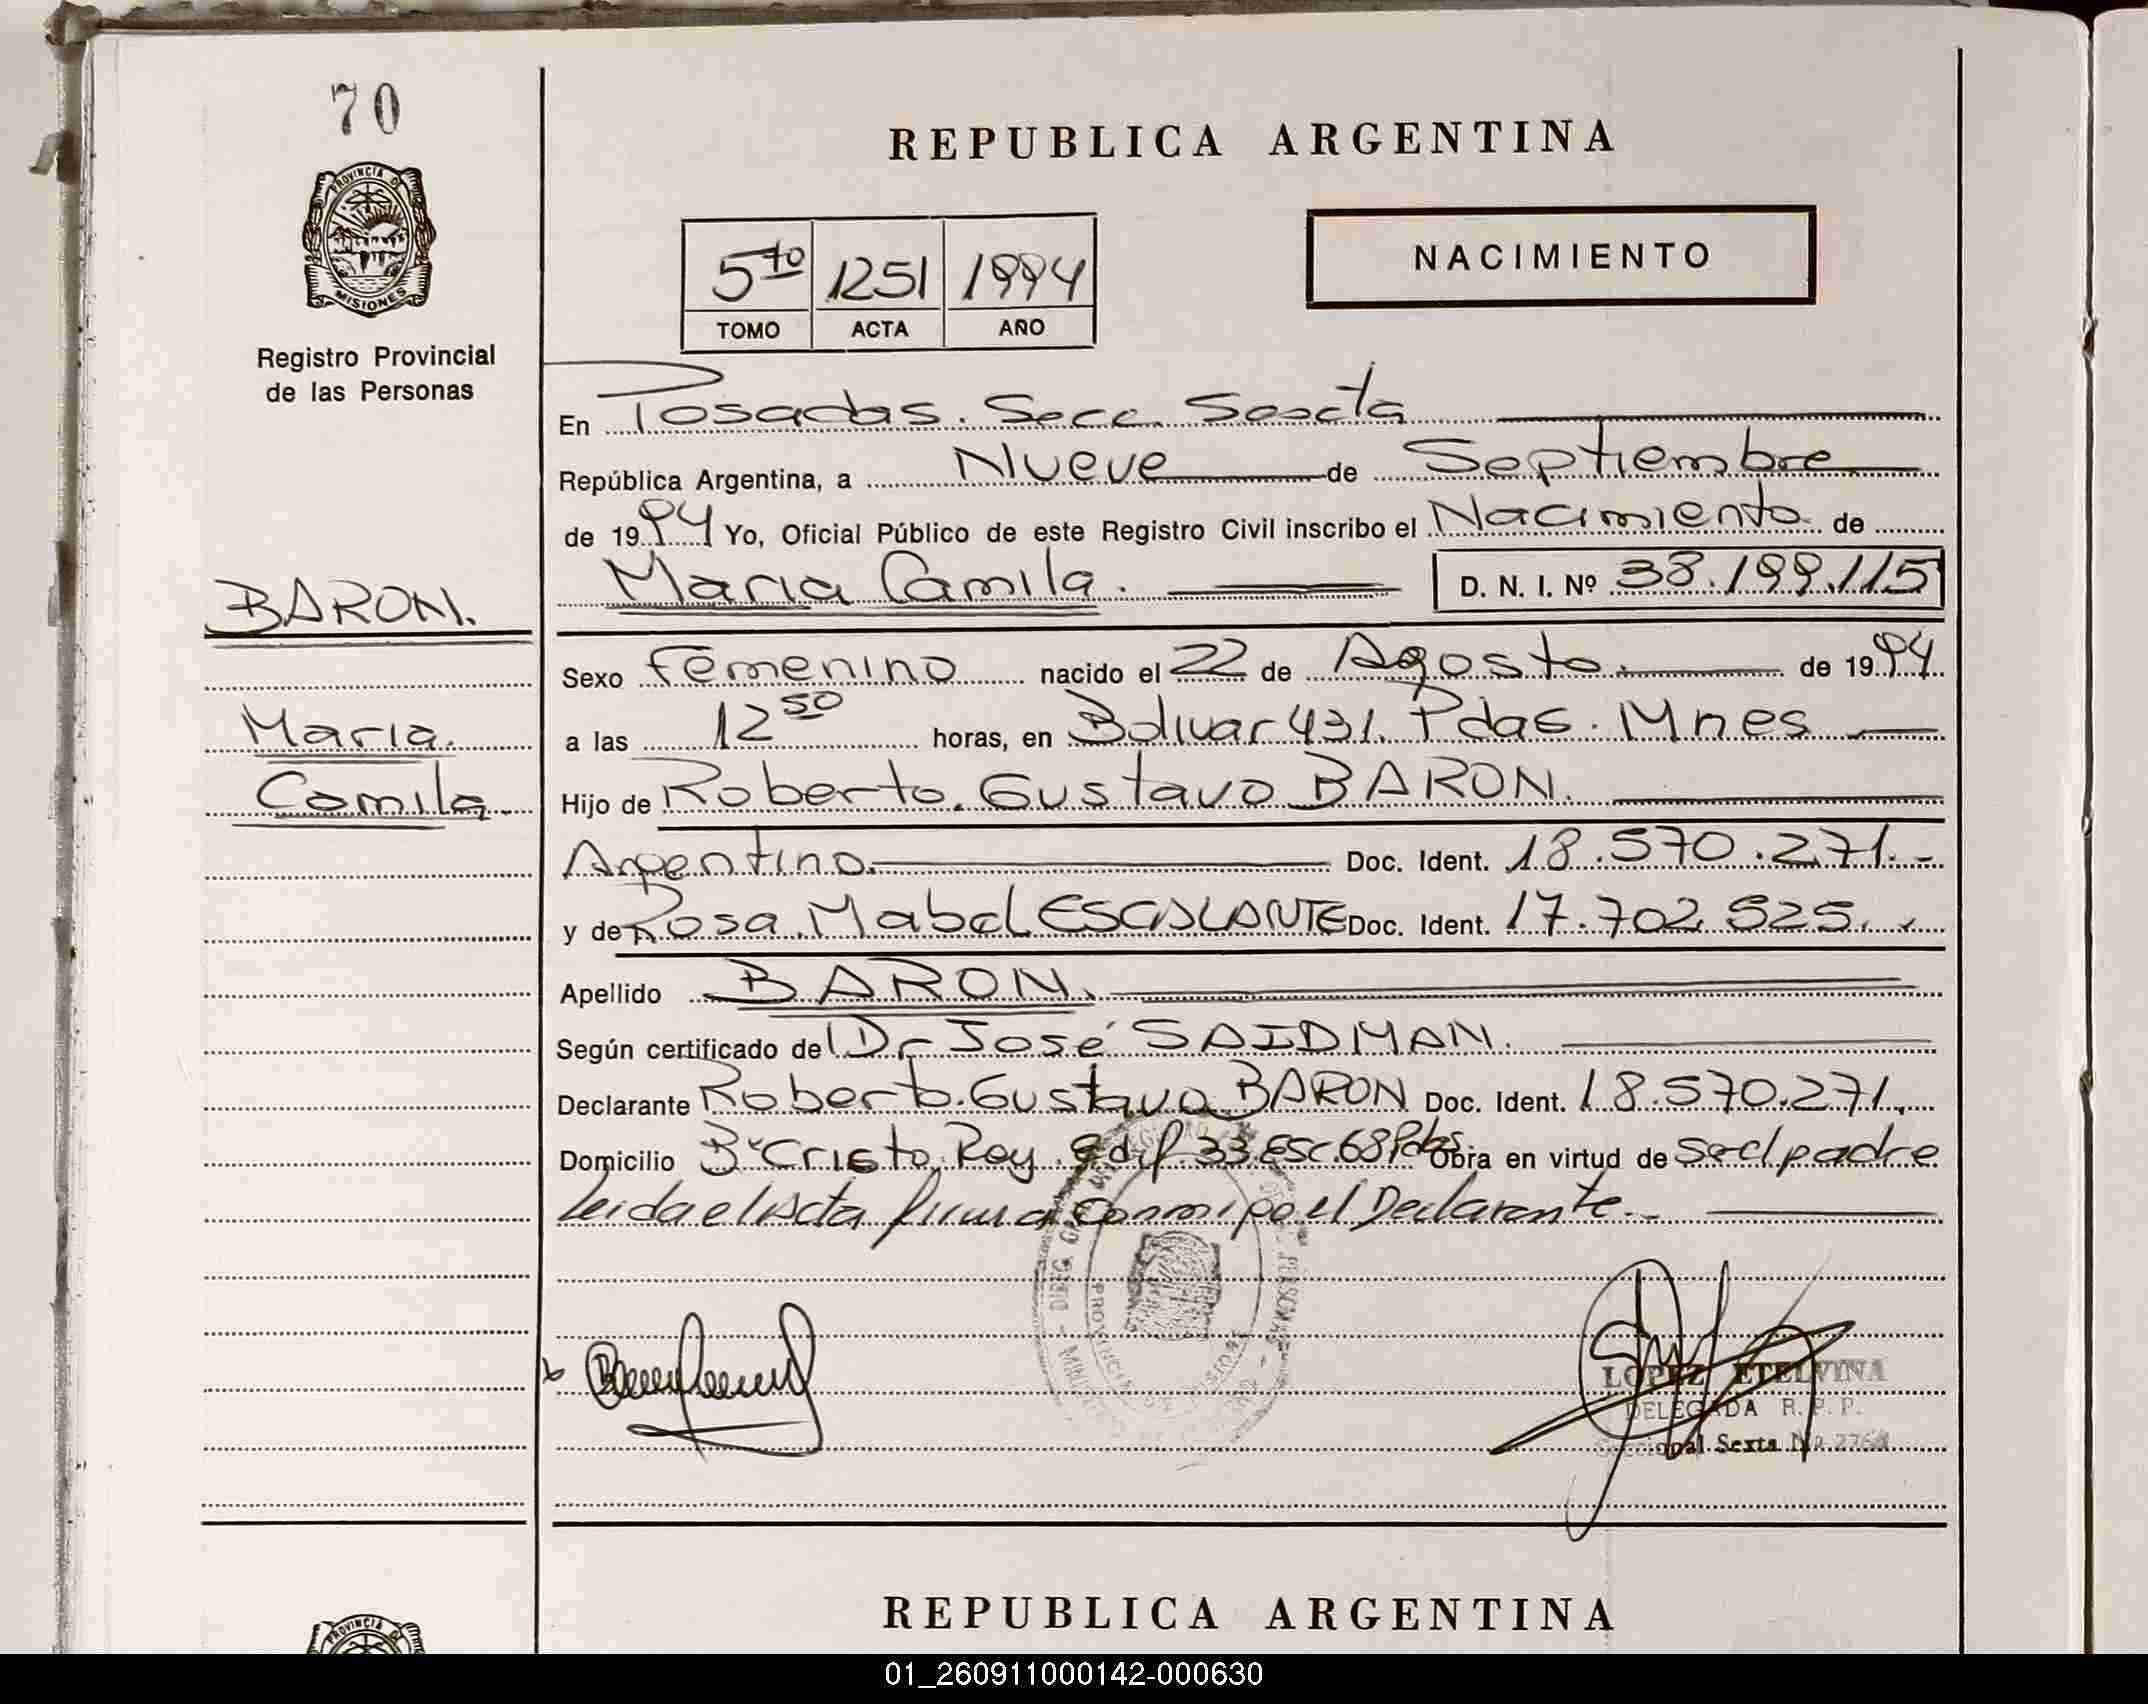 70
PROVINCIA DE
MISIONES
Registro Provincial
de las Personas
REPUBLICA ARGENTINA
NACIMIENTO
5to 1251 1994
TOMO ACTA AÑO
En Posadas. Secc. Sexta
República Argentina, a Nueve de Septiembre
de 1994 Yo, Oficial Público de este Registro Civil inscribo el Nacimiento de
Maria Camila. D. N. I. Nº 38.199.115
BARON.
Maria.
Camila.
Sexo Femenino nacido el 22 de Agosto de 1994
a las 12 50 horas, en Bolivar 431. Pdas. Mnes
Hijo de Roberto. Gustavo BARON.
Argentino. Doc. Ident. 18.570.271.-
y de Rosa. Mabel ESCALANTE Doc. Ident. 17.702.525.
Apellido BARON.
Según certificado de Dr José SAIDMAN.
Declarante Roberto. Gustavo BARON Doc. Ident. 18.570.271.
Domicilio Bº Cristo Rey. edif. 33. esc. 68 Pdas. Obra en virtud de Sol padre
leida el Acta firma Conmigo el Declarante.
LOPEZ ETELVINA
DELEGADA R. P. P.
Seccional Sexta
REPUBLICA ARGENTINA
PROVINCIA DE
01_260911000142-000630